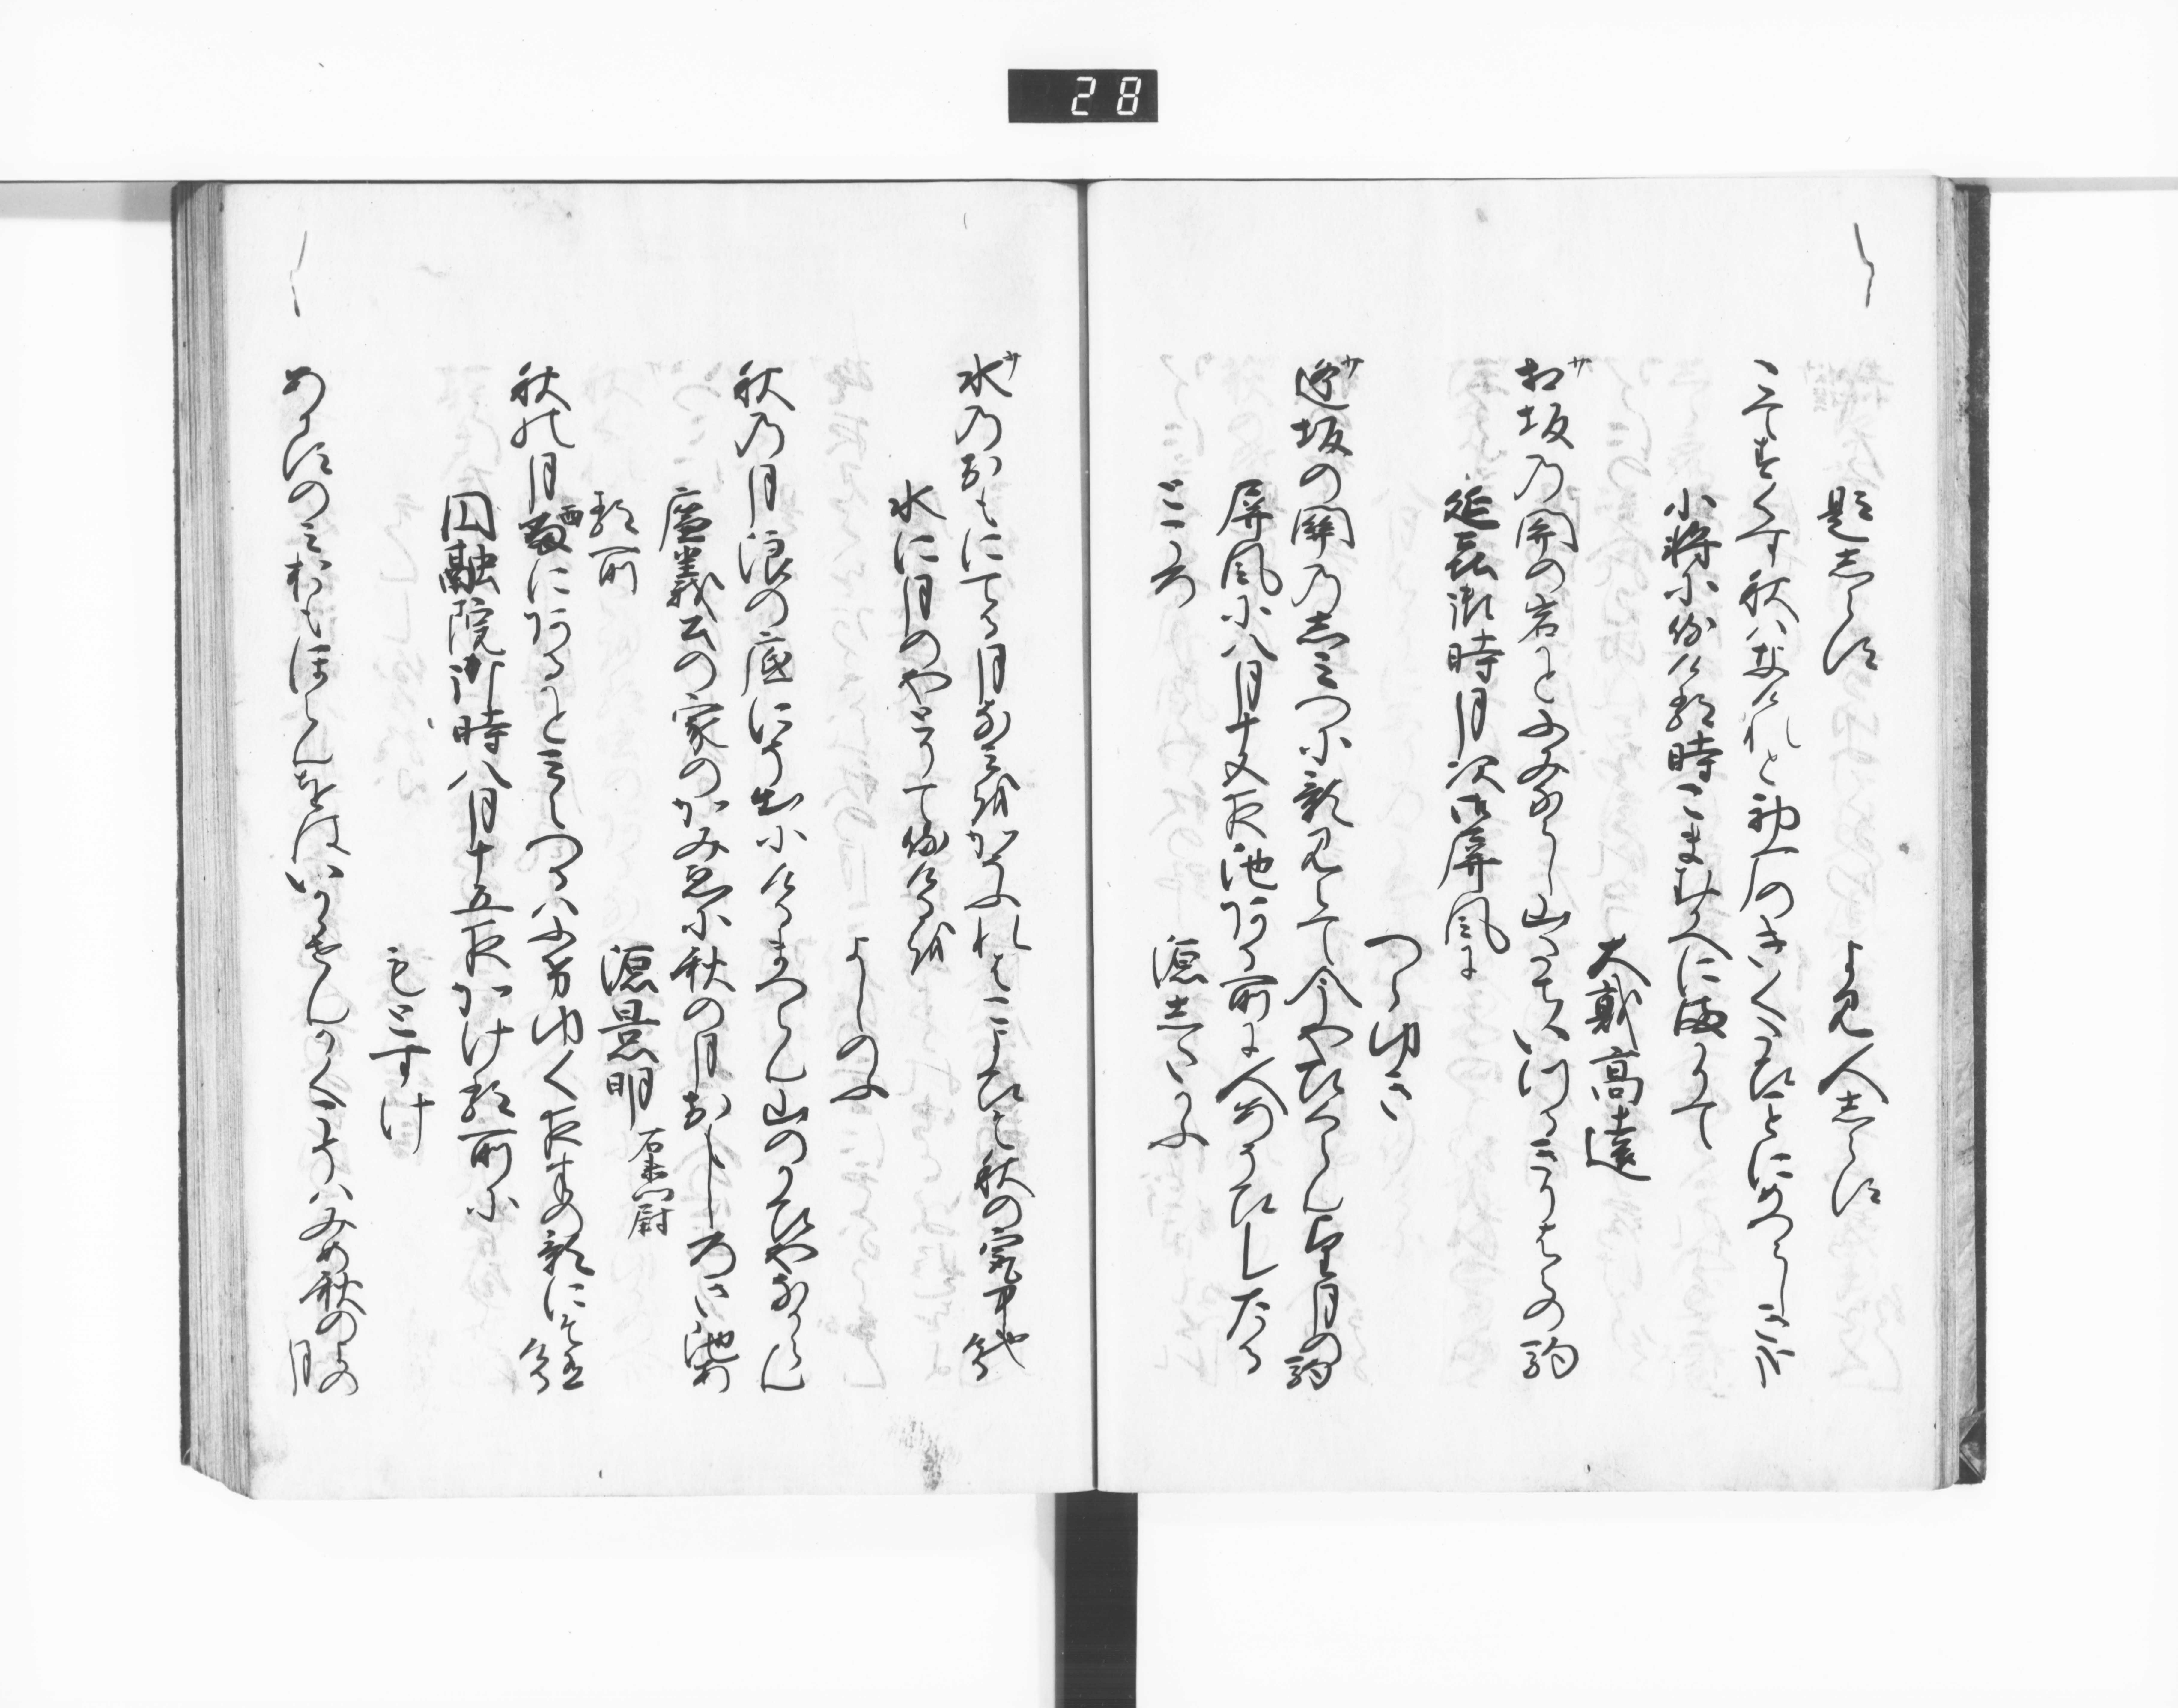 28
題しらす
よみ人しらす
こてすくす秋はなけれと初雁のきくたひことにめつらしき哉
少将に侍ける時こまむかへにまかりて
大弐高遠
相坂の関の岩かとふみならし山たちいつるきりはらの駒
延喜御時月次御屏風に
つらゆき
逢坂の関のしみつに影見えて今やひくらん望月の駒
屏風に八月十五夜池ある所に人あそひしたる
ところ
源したかふ
水のおもにてる月なみをかそふれはこよひそ秋の最中也ける
水に月のやとりて侍けるを
よしのふ
秋の月浪の底にそ出にけるまつらん山のかひやなからん
廉義公の家のかみゑに秋の月おもしろき池ある
家ある所
源景明
兵衛尉
秋の月西にあるかと見えつるはふけゆく夜半の影にそ有ける
円融院御時八月十五夜かける所に
もとすけ
あかすのみおもほえんをはいかゝせんかくこそはみめ秋のよの月